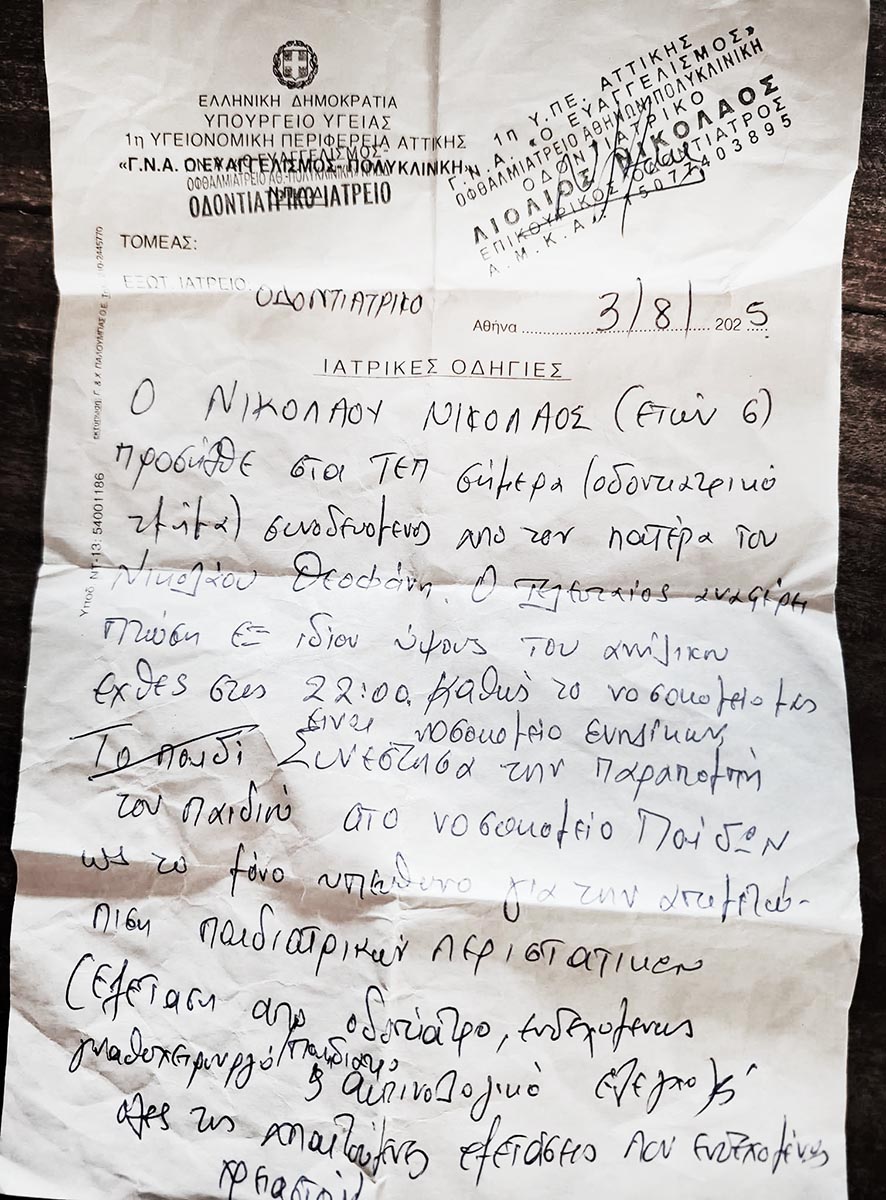 ΕΛΛΗΝΙΚΗ ΔΗΜΟΚΡΑΤΙΑ
ΥΠΟΥΡΓΕΙΟ ΥΓΕΙΑΣ
1η ΥΓΕΙΟΝΟΜΙΚΗ ΠΕΡΙΦΕΡΕΙΑ ΑΤΤΙΚΗΣ
«Γ.Ν.Α. Ο ΕΥΑΓΓΕΛΙΣΜΟΣ- ΠΟΛΥΚΛΙΝΙΚΗ»
ΟΔΟΝΤΙΑΤΡΙΚΟ ΙΑΤΡΕΙΟ
1η Υ.ΠΕ. ΑΤΤΙΚΗΣ
Γ.Ν.Α. «Ο ΕΥΑΓΓΕΛΙΣΜΟΣ»
ΟΦΘΑΛΜΙΑΤΡΕΙΟ ΑΘΗΝΩΝ ΠΟΛΥΚΛΙΝΙΚΗ
ΟΔΟΝΤΙΑΤΡΙΚΟ
ΛΙΟΛΙΟΣ ΝΙΚΟΛΑΟΣ
ΕΠΙΚΟΥΡΙΚΟΣ ΟΔΟΝΤΙΑΤΡΟΣ
Α.Μ.Κ.Α.
ΤΟΜΕΑΣ:
ΕΞΩΤ. ΙΑΤΡΕΙΟ: ΟΔΟΝΤΙΑΤΡΙΚΟ
Αθήνα 3/8/2025
ΙΑΤΡΙΚΕΣ ΟΔΗΓΙΕΣ
Ο ΝΙΚΟΛΑΟΥ ΝΙΚΟΛΑΟΣ (ετών 6)
προσήλθε στα ΤΕΠ σήμερα (οδοντιατρικό
τμήμα) συνοδευόμενος από τον πατέρα του
Νικολάου Θεοφάνη. Ο τελευταίος αναφέρει
πτώση εξ ιδίου ύψους του ανήλικου
εχθές στις 22:00. Καθώς το νοσοκομείο μας
είναι νοσοκομείο ενηλίκων
Το παιδί Συνέστησα την παραπομπή
του παιδιού στο νοσοκομείο Παίδων
ως το μόνο υπεύθυνο για την αντιμετώ-
πιση παιδιατρικών περιστατικών
(Εξέταση από οδοντίατρο, ενδεχομένως
γναθοχειρουργό/παιδίατρο
ακτινολογικό έλεγχο)
όλες τις απαιτούμενες εξετάσεις που ενδεχομένως
Υποδ ΝΤ-13: 54001186